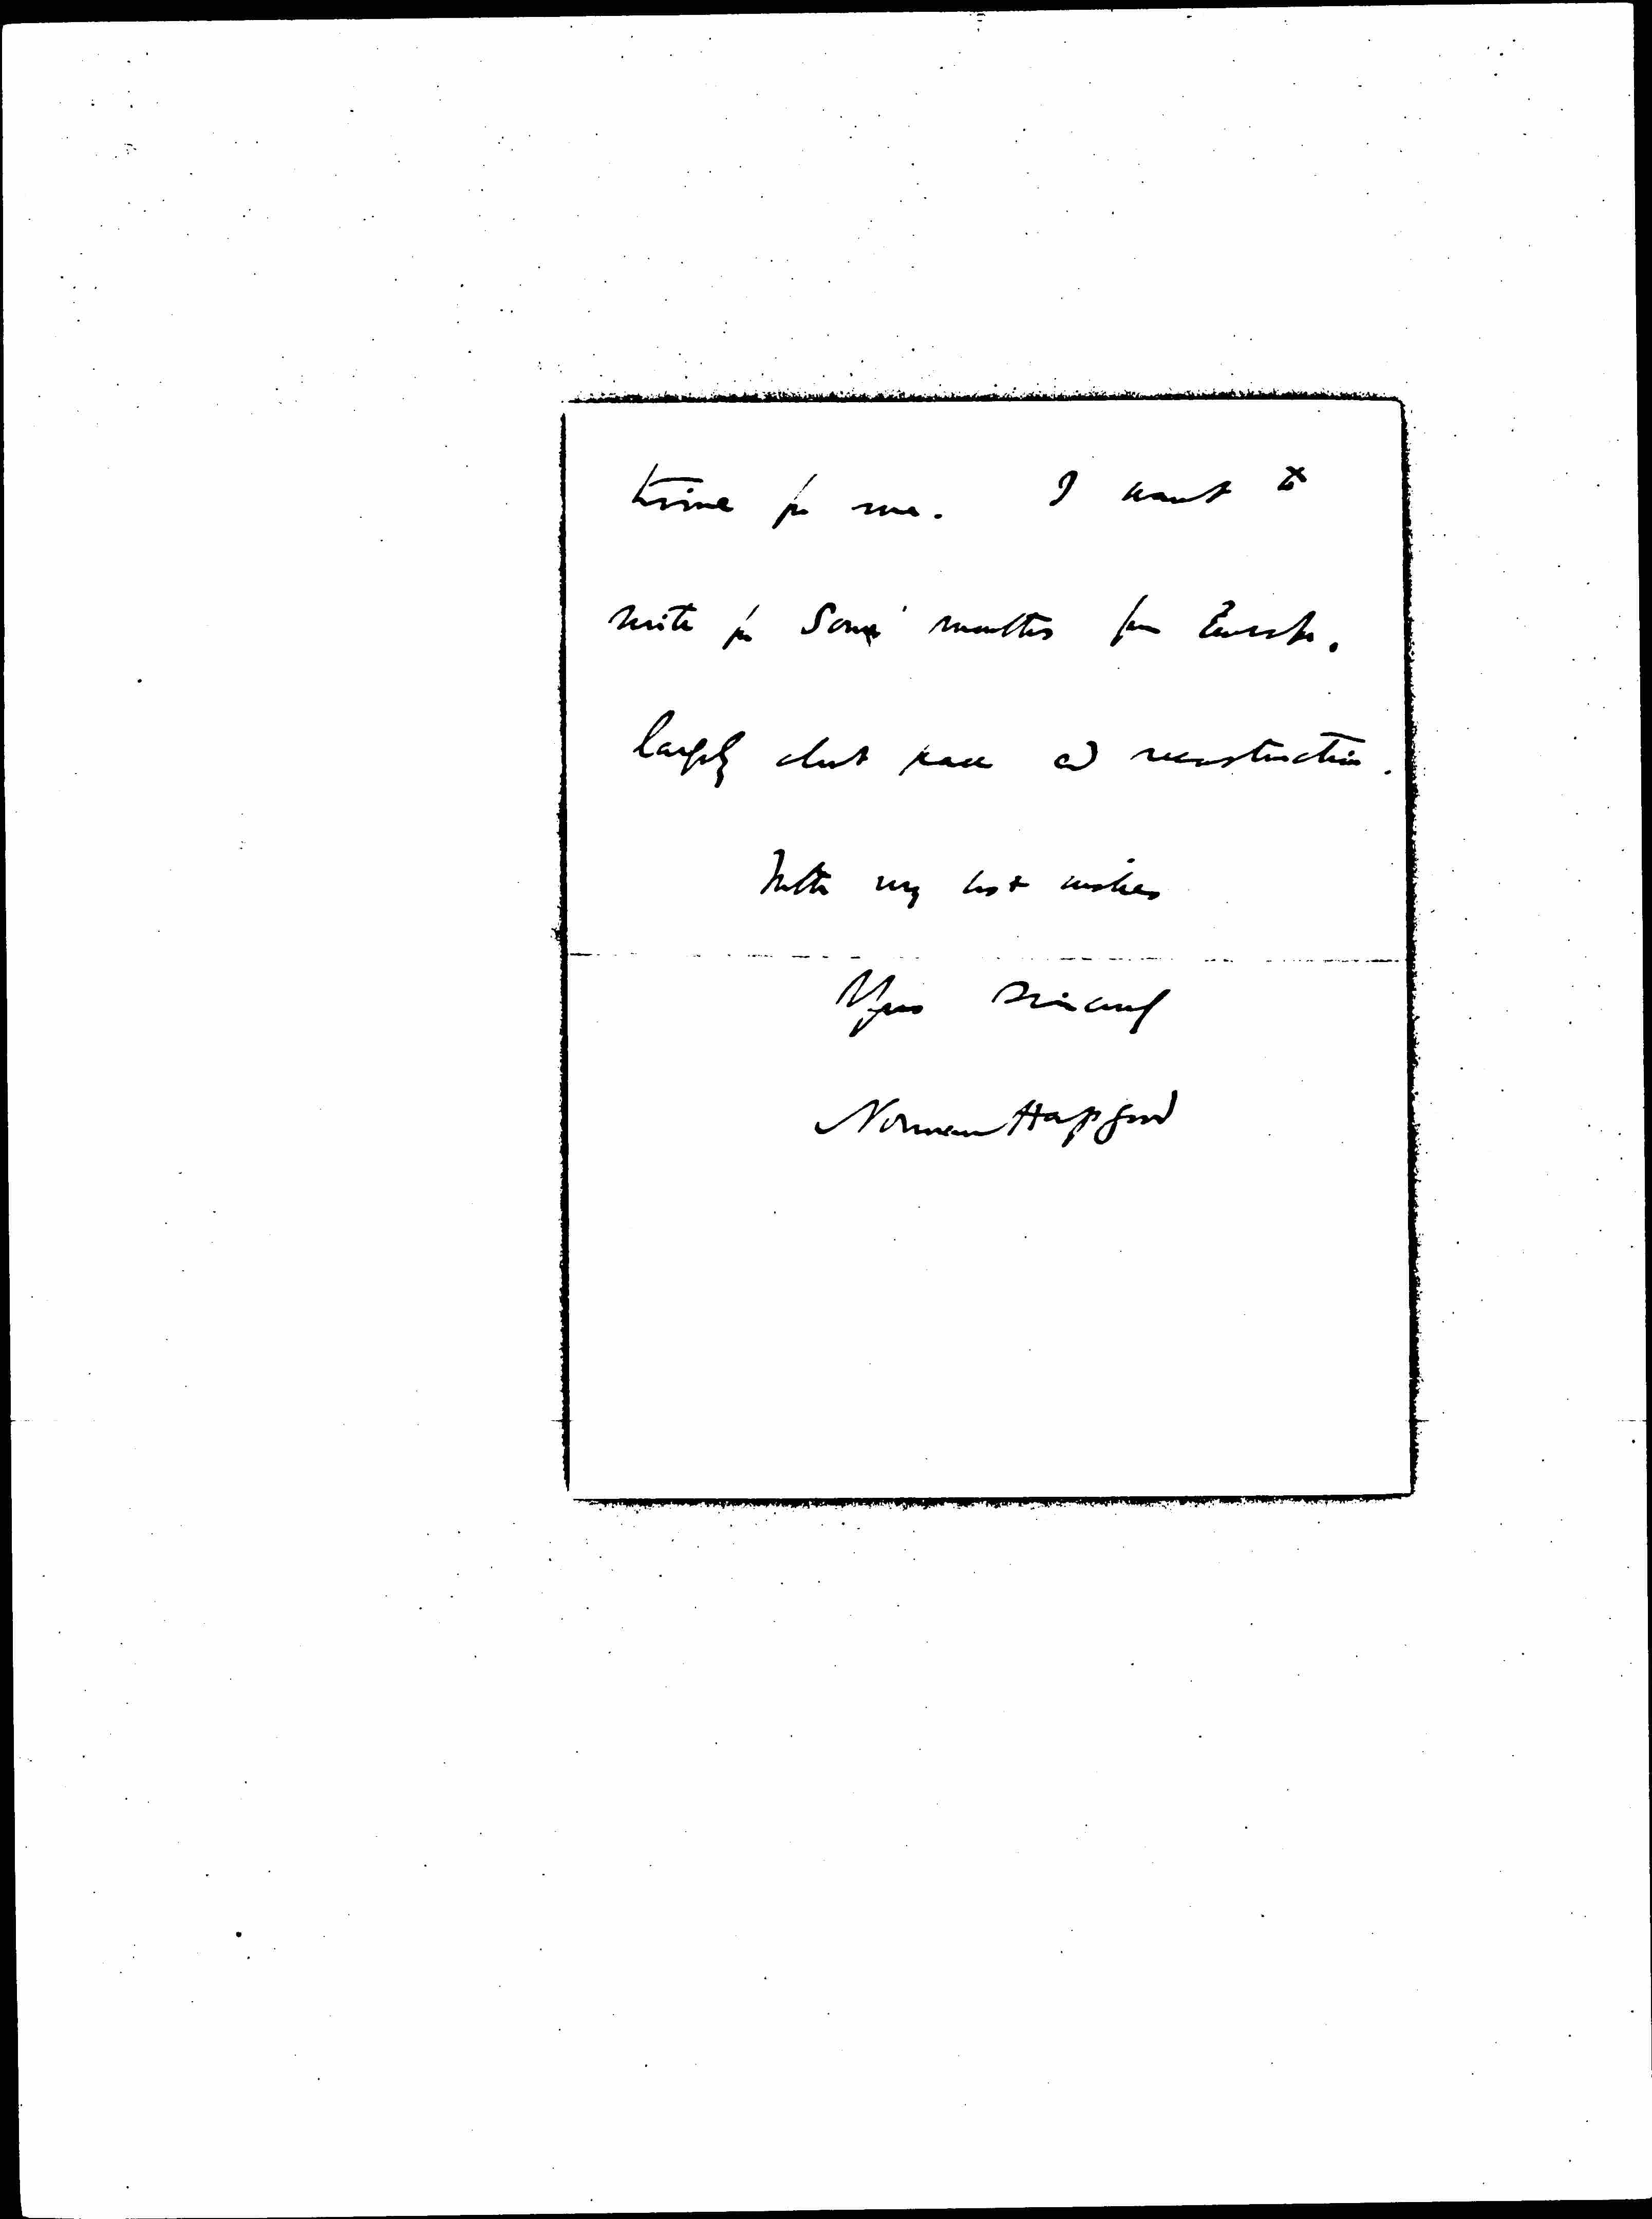 time for me. I want to
write for some months from Europe,
largely about peace and reconstruction.
With my best wishes
Yours sincerely
Norman Hapgood